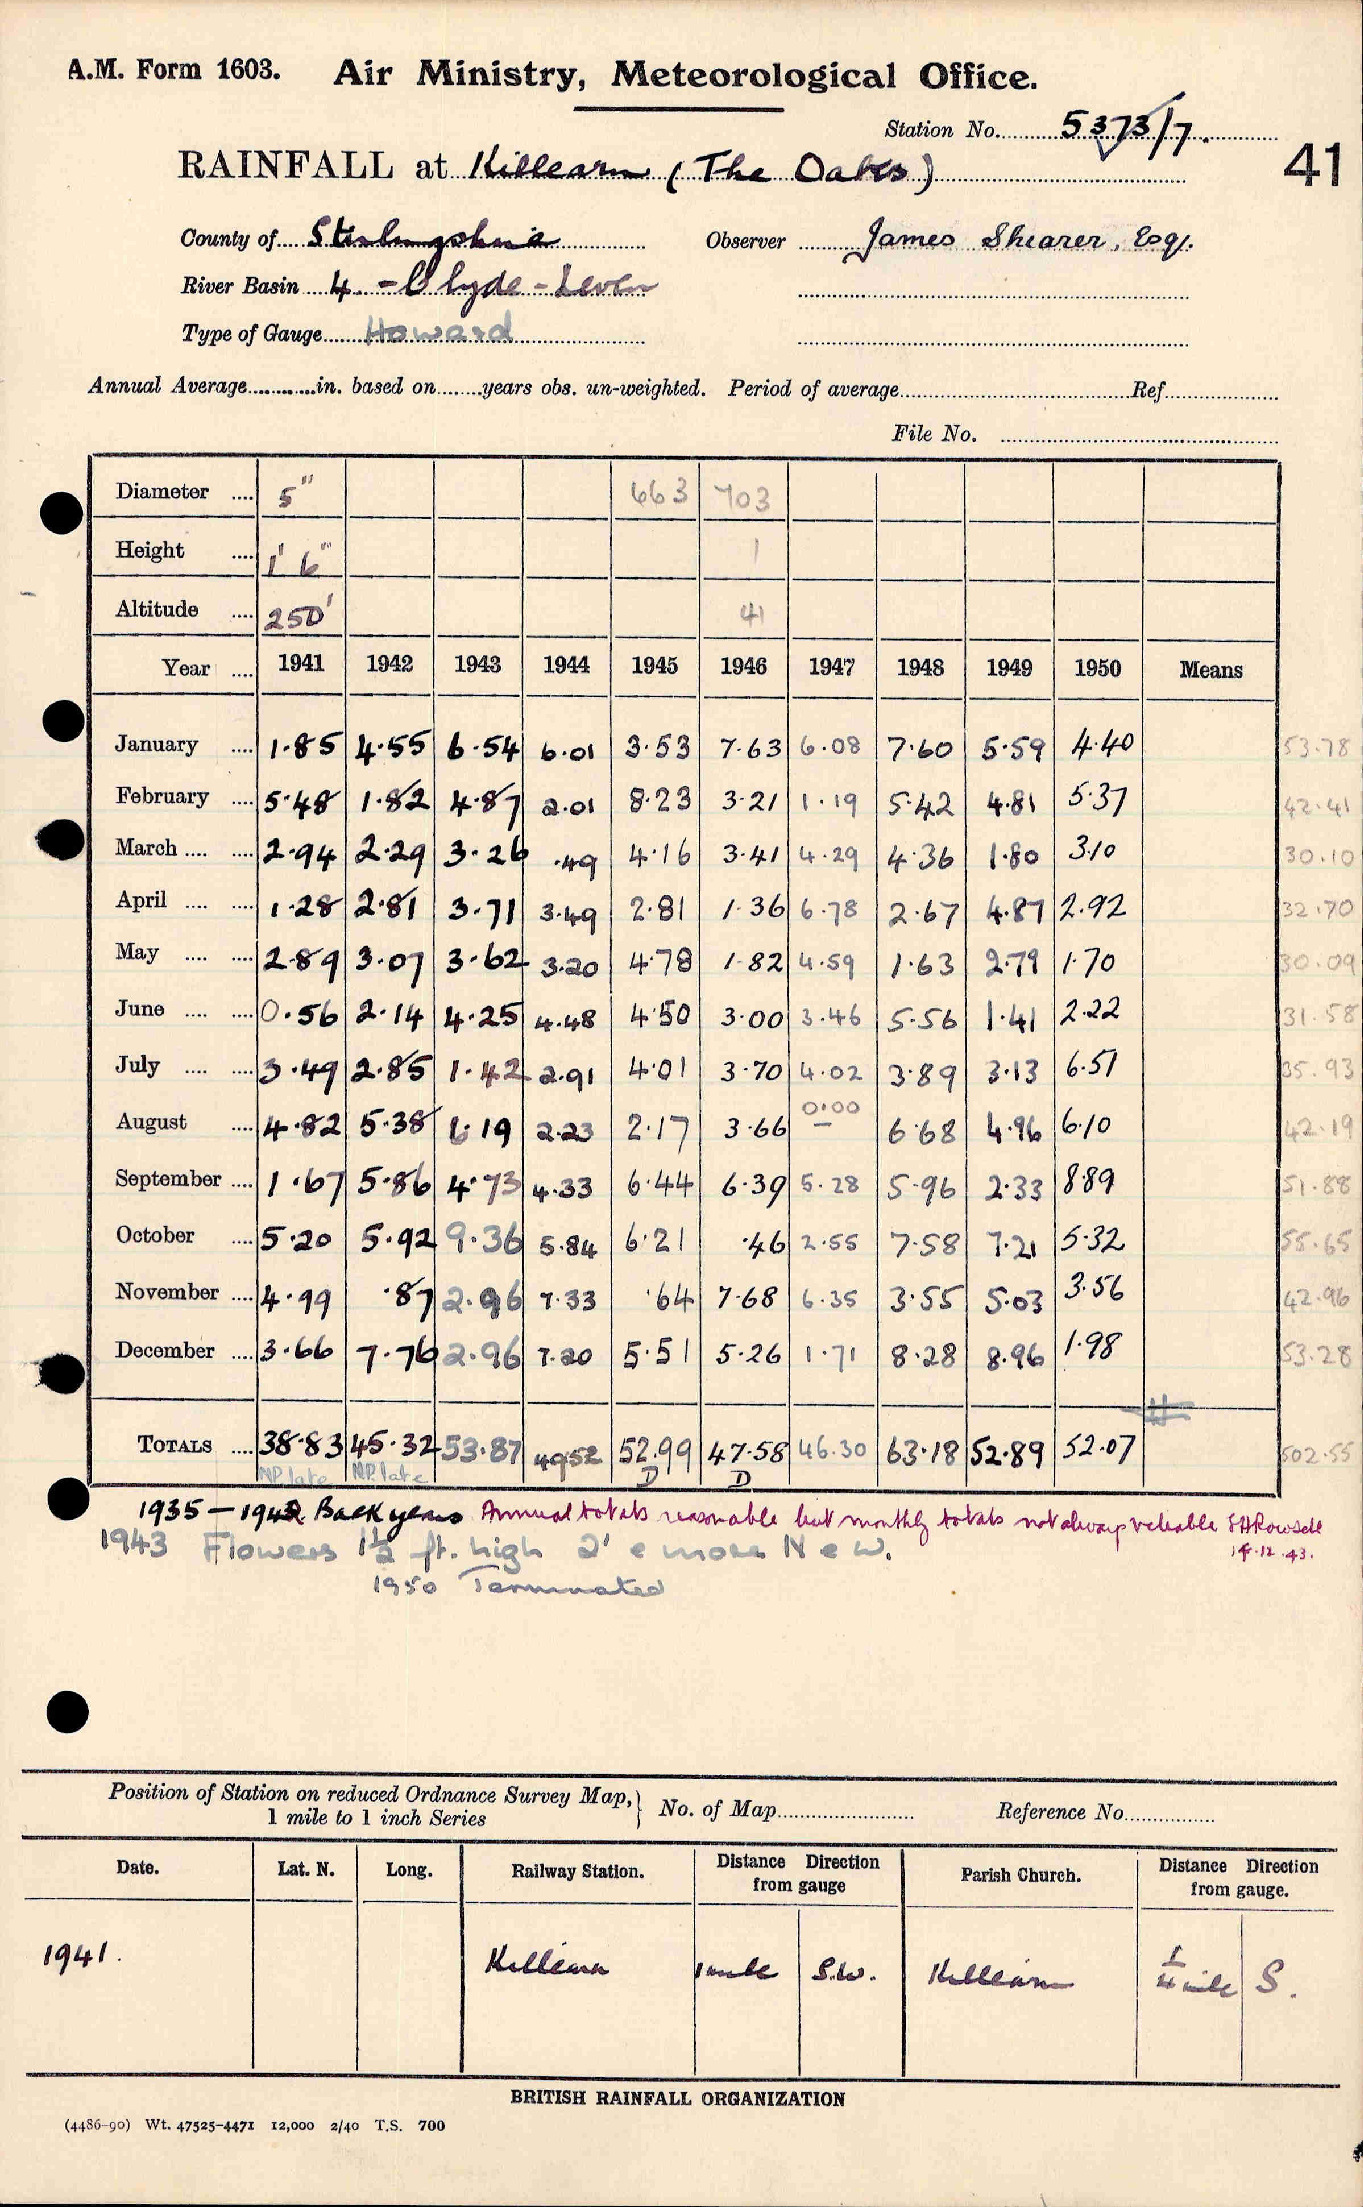 A.M. Form 1603. Air Ministry, Meteorological Office.
Station No. 5373/7.
41
RAINFALL at Killearn (The Oaks)
County of Stirlingshire Observer James Shearer, Esq.
River Basin 4. - Clyde - Leven
Type of Gauge Howard
Annual Average in. based on years obs. un-weighted. Period of average Ref
File No.
Diameter 5" 663 703
Height 1' 6" 1
Altitude 250' 41
Year 1941 1942 1943 1944 1945 1946 1947 1948 1949 1950 Means
January 1.85 4.55 6.54 6.01 3.53 7.63 6.08 7.60 5.59 4.40 53.78
February 5.48 1.82 4.87 2.01 8.23 3.21 1.19 5.42 4.81 5.37 42.41
March 2.94 2.29 3.26 .49 4.16 3.41 4.29 4.36 1.80 3.10 30.10
April 1.28 2.81 3.71 3.49 2.81 1.36 6.78 2.67 4.87 2.92 32.70
May 2.89 3.07 3.62 3.20 4.78 1.82 4.59 1.63 2.79 1.70 30.09
June 0.56 2.14 4.25 4.48 4.50 3.00 3.46 5.56 1.41 2.22 31.58
July 3.49 2.85 1.42 2.91 4.01 3.70 4.02 3.89 3.13 6.51 35.93
August 4.82 5.38 6.19 2.23 2.17 3.66 0.00 – 6.68 4.96 6.10 42.19
September 1.67 5.86 4.73 4.33 6.44 6.39 5.28 5.96 2.33 8.89 51.88
October 5.20 5.92 9.36 5.84 6.21 .46 2.55 7.58 7.21 5.32 55.65
November 4.99 .87 2.96 7.33 .64 7.68 6.35 3.55 5.03 3.56 42.96
December 3.66 7.76 2.96 7.20 5.51 5.26 1.71 8.28 8.96 1.98 53.28
TOTALS 38.83 45.32 53.87 49.52 52.99 47.58 46.30 63.18 52.89 52.07 502.55
NP. late NP. late D D
1935 – 1942 Back years Annual totals reasonable but monthly totals not always reliable
14.12.43.
1943 Flowers 1½ ft. high 2' e more N e W.
1950 Terminated
Position of Station on reduced Ordnance Survey Map, 1 mile to 1 inch Series } No. of Map Reference No.
Date. Lat. N. Long. Railway Station. Distance Direction from gauge Parish Church. Distance Direction from gauge.
1941. Killearn 1 mile S.W. Killearn ¼ mile S.
BRITISH RAINFALL ORGANIZATION
(4486-90) Wt. 47525-4471 12,000 2/40 T.S. 700